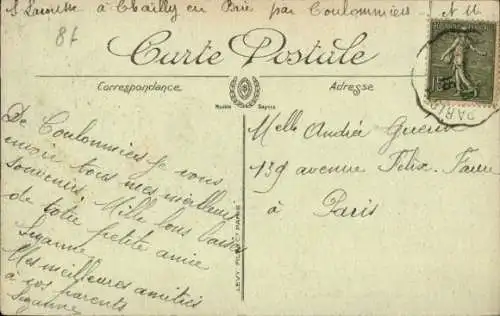 S Larousse à Chailly en Brie par Coulommiers S et M
87
Carte Postale
Correspondance
Adresse
Modèle Déposé
De Coulommiers je vous
envoie tous mes meilleurs
souvenirs. Mille bons baisers
de votre petite amie
Suzanne
Mes meilleures amitiés
à vos parents
Suzanne
LEVY FILS ET CIE PARIS
Melle Andrée Guerin
139 avenue Félix Faure
à Paris
PARIS